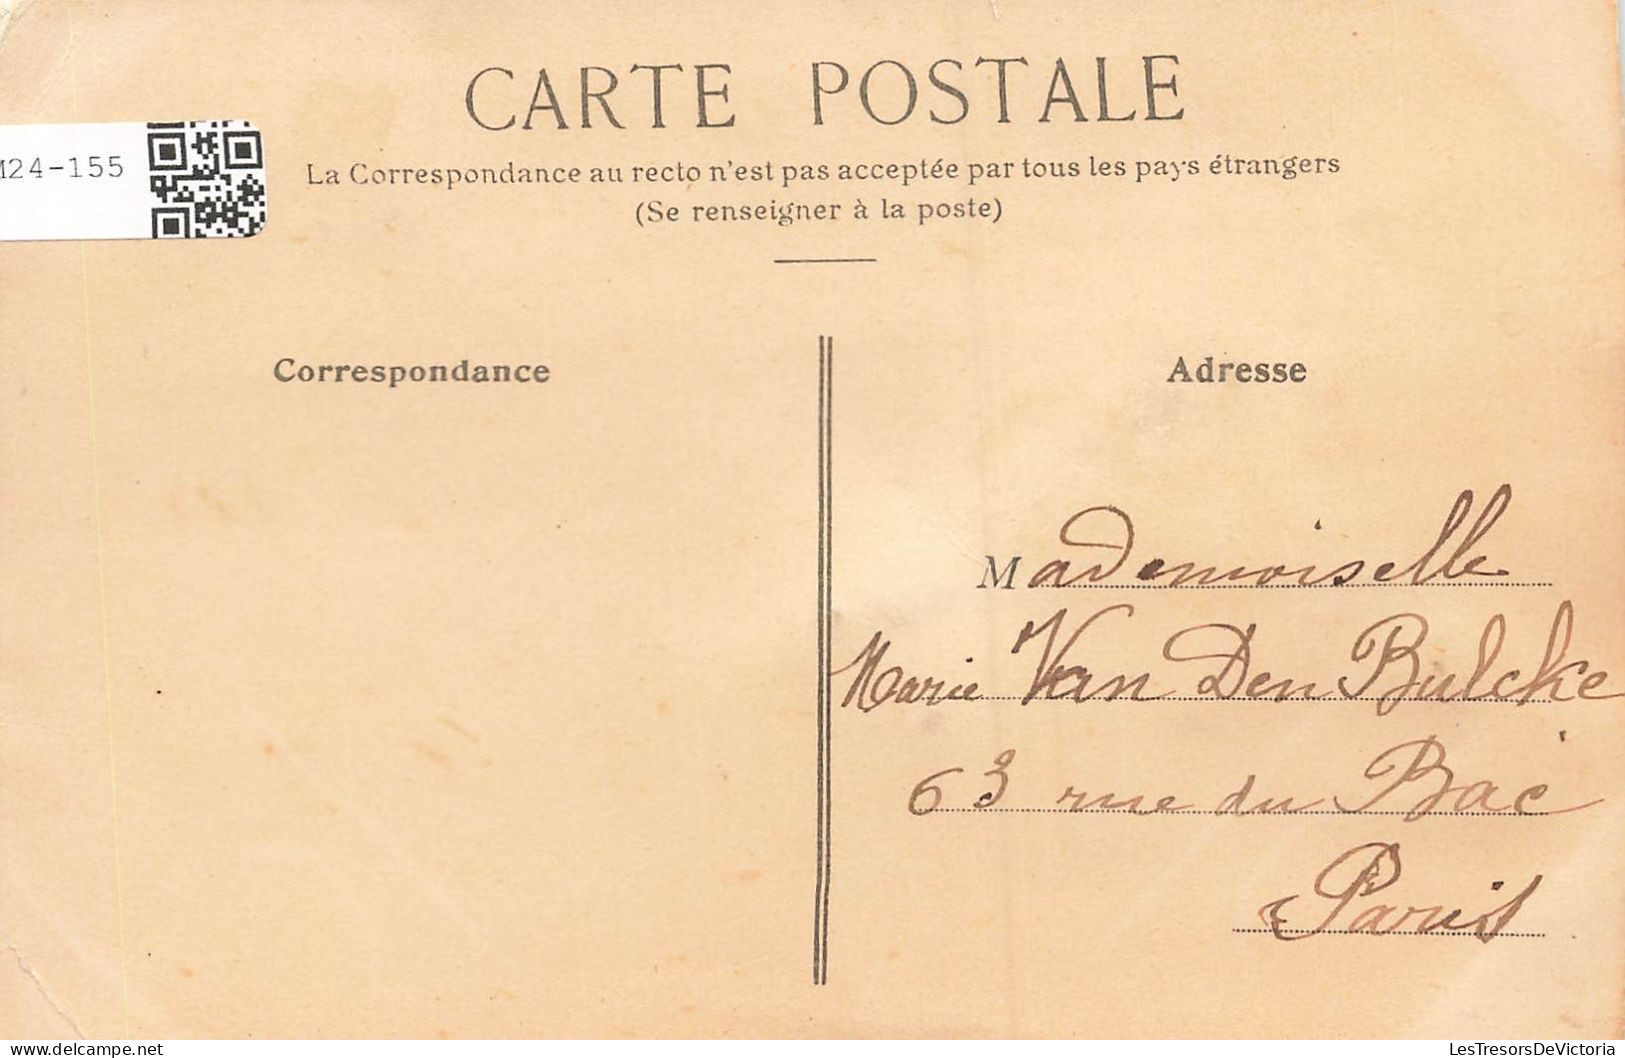 CARTE POSTALE
La Correspondance au recto n'est pas acceptée par tous les pays étrangers
(Se renseigner à la poste)
M24-155
Correspondance
Adresse
Mademoiselle
Marie Van Den Bulcke
63 rue du Bac
Paris
LesTresorsDeVictoria